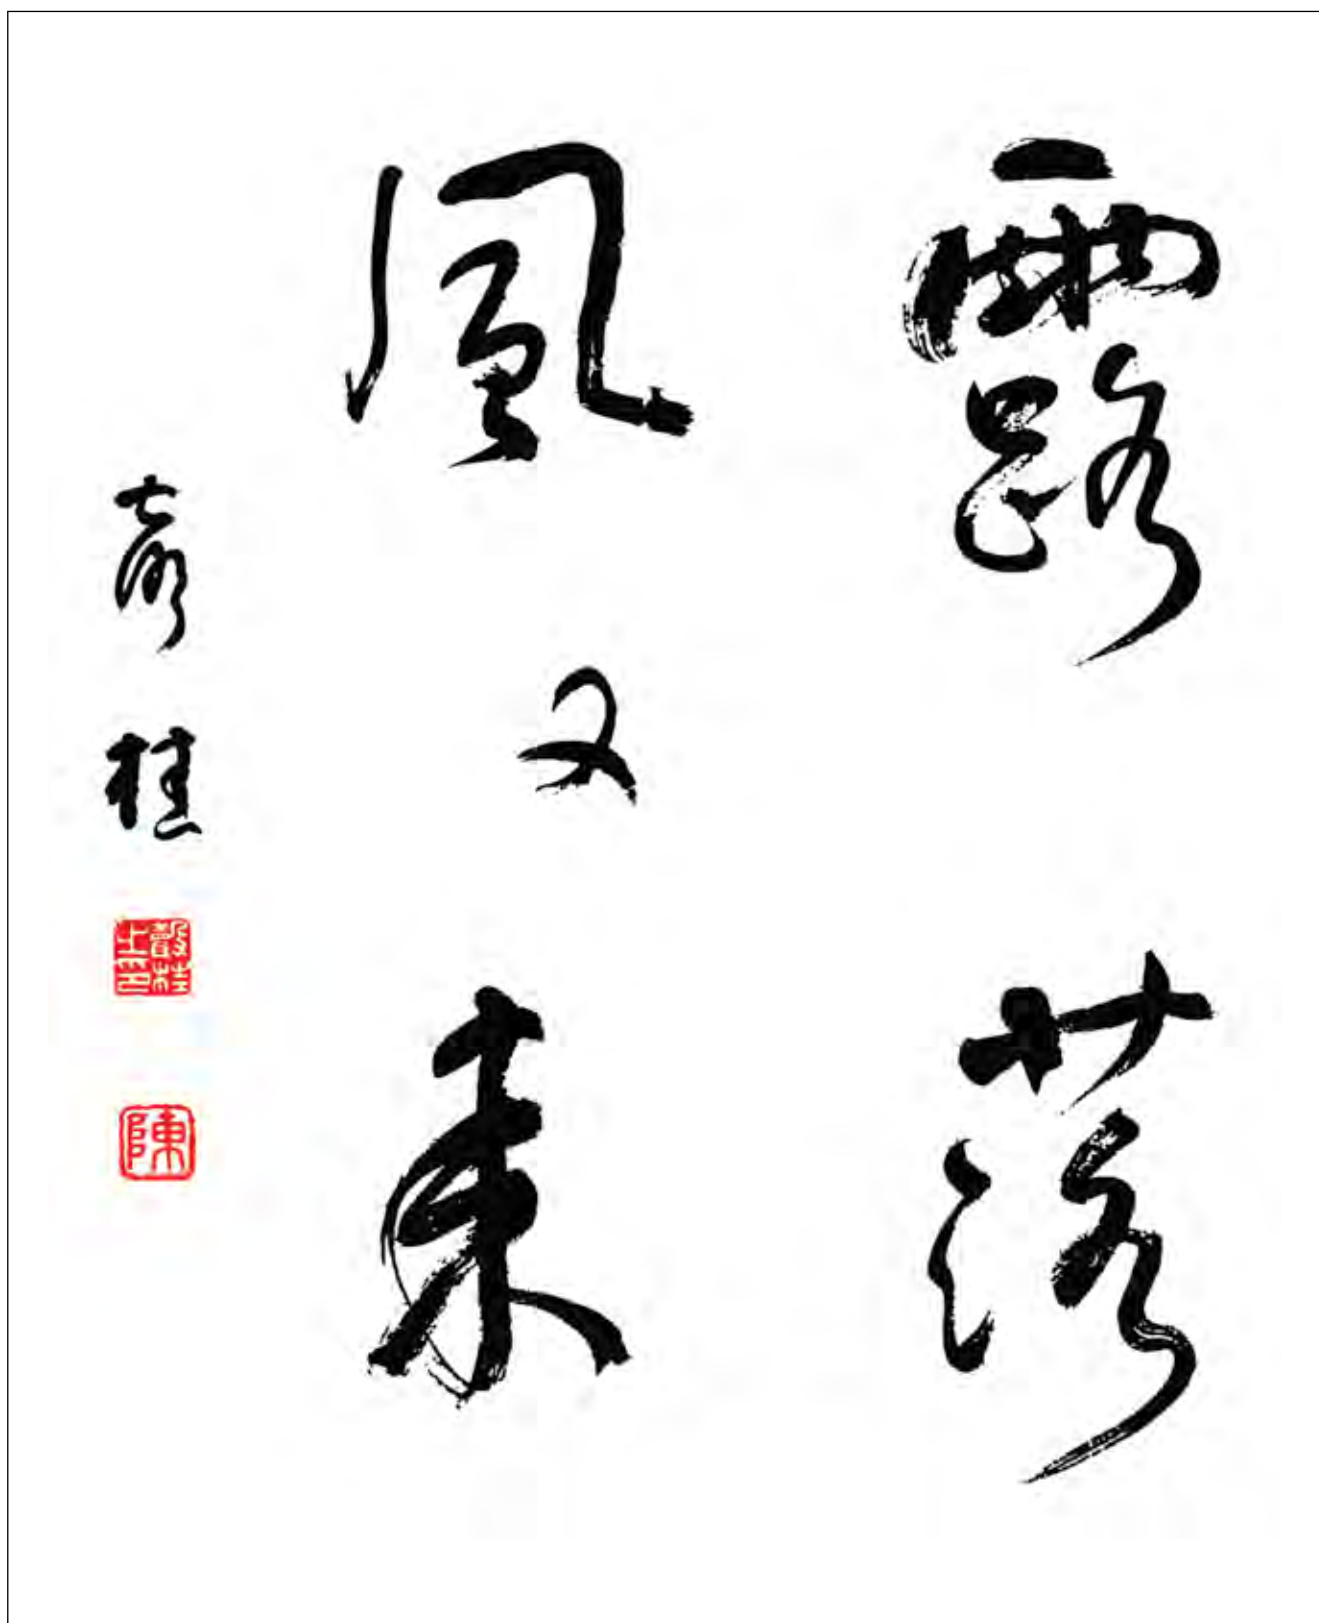 露落
風又来
聲桂
聲桂之印
陳